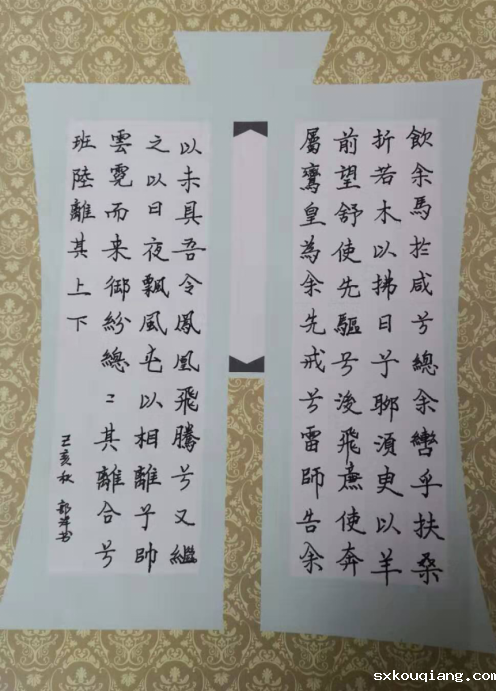 飲余馬於咸兮總余轡乎扶桑
折若木以拂日兮聊須臾以羊
前望舒使先驅兮後飛廉使奔
屬鸞皇為余先戒兮雷師告余
以未具吾令鳳凰飛騰兮又繼
之以日夜飄風屯以相離兮帥
雲霓而来御紛總〻其離合兮
班陸離其上下
己亥秋
sxkouqiang.com